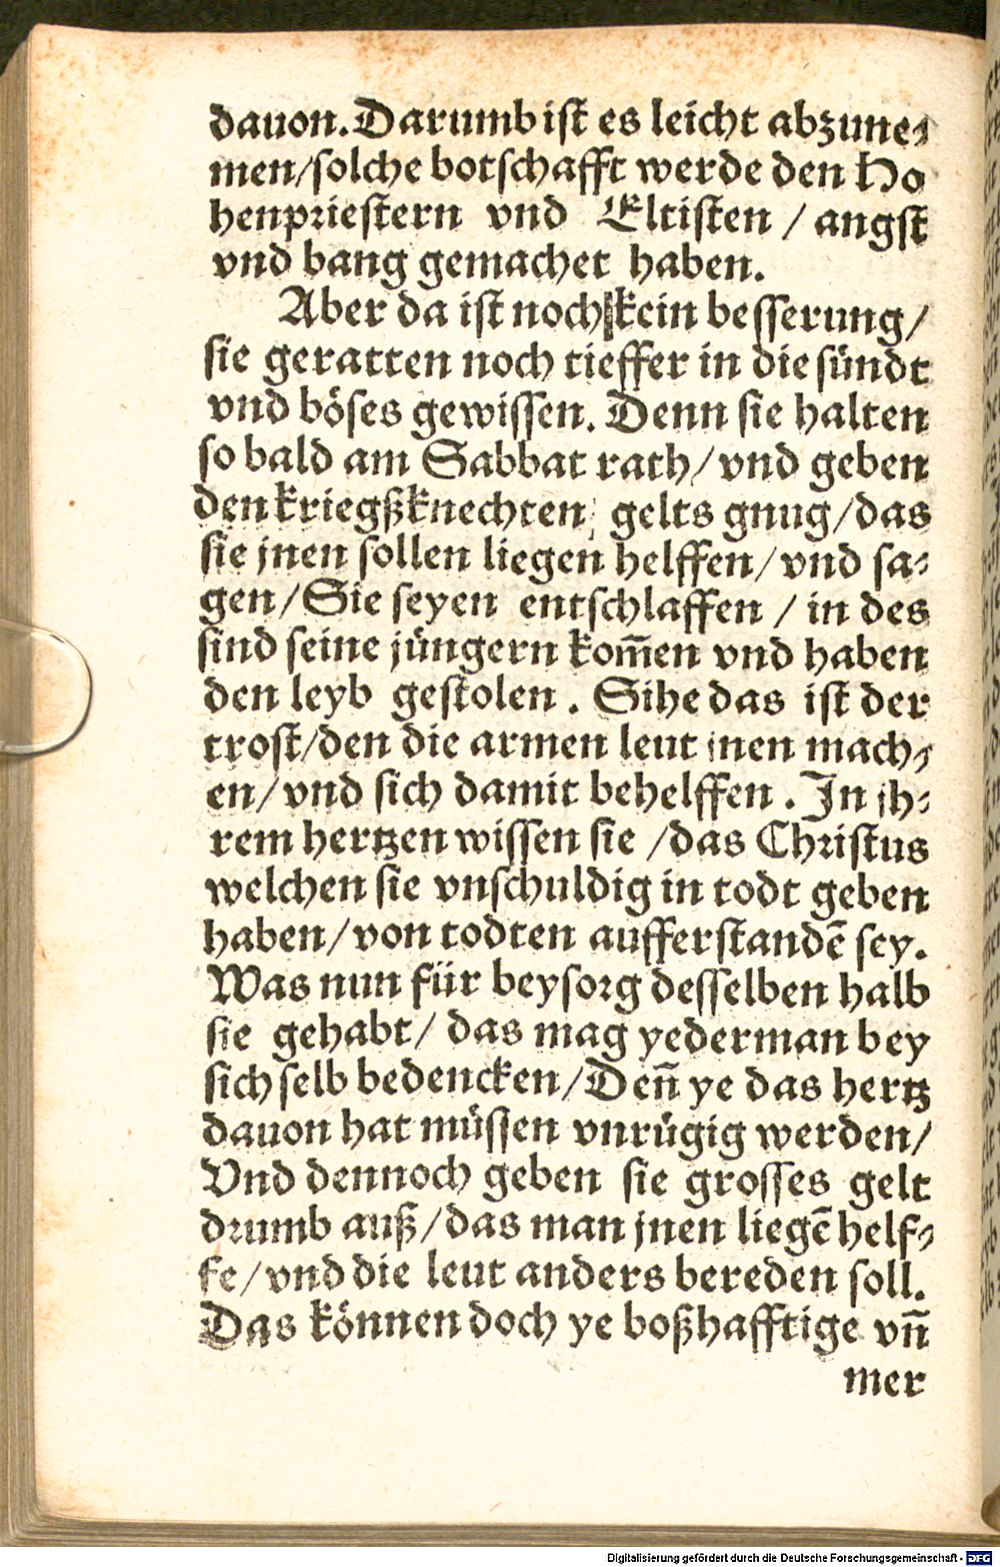 dauon. Darumb ist es leicht abzune-
men/solche botschafft werde den Ho
henpriestern vnd Eltisten / angst
vnd bang gemachet haben.
Aber da ist noch kein besserung/
sie geratten noch tieffer in die sündt
vnd böses gewissen. Denn sie halten
so bald am Sabbat rath/vnd geben
den kriegßknechten gelts gnug/das
sie jnen sollen liegen helffen/vnd sa-
gen/Sie seyen entschlaffen / in des
sind seine jüngern kom̃en vnd haben
den leyb gestolen. Sihe das ist der
trost/den die armen leut jnen mach-
en/vnd sich damit behelffen. In jh-
rem hertzen wissen sie /das Christus
welchen sie vnschuldig in todt geben
haben/von todten aufferstandẽ sey.
Was nun für beysorg desselben halb
sie gehabt/ das mag yederman bey
sich selb bedencken/Deñ ye das hertz
dauon hat müssen vnrügig werden/
Vnd dennoch geben sie grosses gelt
drumb auß/das man jnen liegẽ helf-
fe/vnd die leut anders bereden soll.
Das können doch ye boßhafftige vñ
mer
Digitalisierung gefördert durch die Deutsche Forschungsgemeinschaft - DFG